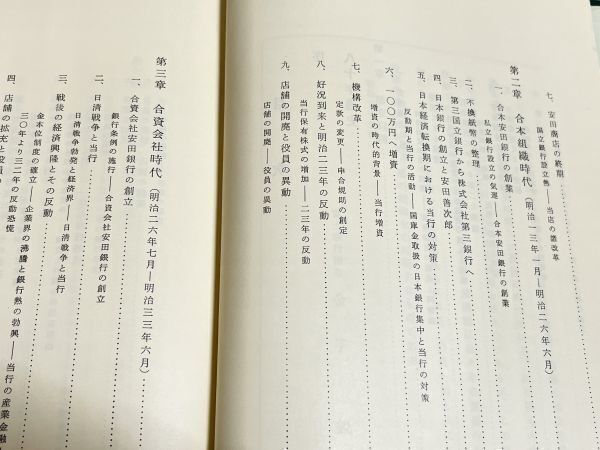 七、安田商店の終期
国立銀行設立熱——当店の諸改革
第二章 合本組織時代（明治一三年一月—明治二六年六月）
一、合本安田銀行の創業
私立銀行設立の気運——合本安田銀行の創業
二、不換紙幣の整理
三、第三国立銀行から株式会社第三銀行へ
四、日本銀行の創立と安田善次郎
五、日本経済転換期における当行の対策
反動期と当行の活動——国庫金取扱の日本銀行集中と当行の対策
六、一〇〇万円へ増資
増資の時代的背景——当行増資
七、機構改革
定款の変更——申合規則の創定
八、好況到来と明治二三年の反動
当行保有株式の増加——二三年の反動
九、店舗の開廃と役員の異動
店舗の開廃——役員の異動
第三章 合資会社時代（明治二六年七月—明治三三年六月）
一、合資会社安田銀行の創立
銀行条例の施行——合資会社安田銀行の創立
二、日清戦争と当行
日清戦争勃発と経済界——日清戦争と当行
三、戦後の経済興隆とその反動
金本位制度の確立——企業界の沸騰と銀行熱の勃興——当行の産業金融
三〇年より三二年の反動恐慌
四、店舗の拡充と役員の